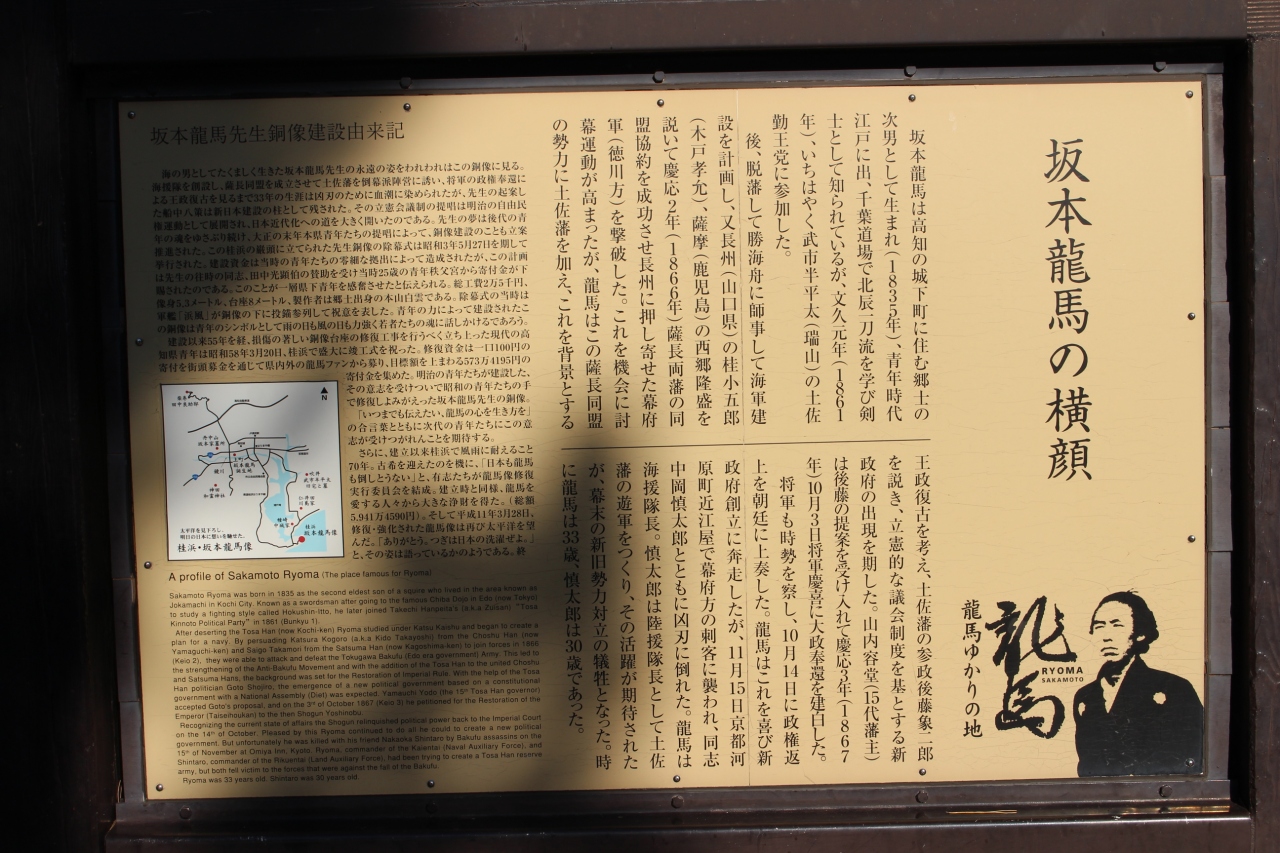 坂本龍馬の横顔
坂本龍馬は高知の城下町に住む郷士の
次男として生まれ(1835年)、青年時代
江戸に出、千葉道場で北辰一刀流を学び剣
士として知られているが、文久元年(1861
年)、いちはやく武市半平太(瑞山)の土佐
勤王党に参加した。
後、脱藩して勝海舟に師事して海軍建
設を計画し、又長州(山口県)の桂小五郎
(木戸孝允)、薩摩(鹿児島)の西郷隆盛を
説いて慶応2年(1866年)薩長両藩の同
盟協約を成功させ長州に押し寄せた幕府
軍(徳川方)を撃破した。これを機会に討
幕運動が高まったが、龍馬はこの薩長同盟
の勢力に土佐藩を加え、これを背景とする
王政復古を考え、土佐藩の参政後藤象二郎
を説き、立憲的な議会制度を基とする新
政府の出現を期した。山内容堂(15代藩主)
は後藤の提案を受け入れて慶応3年(1867
年)10月3日将軍慶喜に大政奉還を建白した。
将軍も時勢を察し、10月14日に政権返
上を朝廷に上奏した。龍馬はこれを喜び新
政府創立に奔走したが、11月15日京都河
原町近江屋で幕府方の刺客に襲われ、同志
中岡慎太郎とともに凶刃に倒れた。龍馬は
海援隊長。慎太郎は陸援隊長として土佐
藩の遊軍をつくり、その活躍が期待された
が、幕末の新旧勢力対立の犠牲となった。時
に龍馬は33歳、慎太郎は30歳であった。
龍馬
RYOMA
SAKAMOTO
龍馬ゆかりの地
坂本龍馬先生銅像建設由来記
海の男としてたくましく生きた坂本龍馬先生の永遠の姿をわれわれはこの銅像に見る。
海援隊を創設し、薩長同盟を成立させて土佐藩を倒幕派陣営に誘い、将軍の政権奉還に
よる王政復古を見るまで33年の生涯は凶刃のために血潮に染められたが、先生の起案し
た船中八策は新日本建設の柱として残された。その立憲会議制の提唱は明治の自由民
権運動として展開され、日本近代化への道を大きく開いたのである。先生の夢は後代の青
年の魂をゆさぶり続け、大正の末年本県青年たちの提唱によって、銅像建設のことも立案
推進された。この桂浜の巌頭に立てられた先生銅像の除幕式は昭和3年5月27日を期して
挙行された。建設資金は当時の青年たちの零細な拠出によって造成されたが、この計画
は先生の往時の同志、田中光顕伯の賛助を受け当時25歳の青年秩父宮から寄付金が下
賜されたのである。このことが一層県下青年を感奮させたと伝えられる。総工費2万5千円、
像身5.3メートル、台座8メートル、製作者は郷土出身の本山白雲である。除幕式の当時は
軍艦「浜風」が銅像の下に投錨参列して祝意を表した。青年の力によって建設されたこ
の銅像は青年のシンボルとして雨の日も風の日も力強く若者たちの魂に話しかけるであろう。
建設以来55年を経、損傷の著しい銅像台座の修復工事を行うべく立ち上った現代の高
知県青年は昭和58年3月20日、桂浜で盛大に竣工式を祝った。修復資金は一口100円の
寄付を街頭募金を通じて県内外の龍馬ファンから募り、目標額を上まわる573万4195円の
寄付金を集めた。明治の青年たちが建設した、
その意志を受けついで昭和の青年たちの手
で修復しよみがえった坂本龍馬先生の銅像。
「いつまでも伝えたい、龍馬の心を生き方を」
の合言葉とともに次代の青年たちにこの意
志が受けつがれんことを期待する。
さらに、建立以来桂浜で風雨に耐えること
70年。古希を迎えたのを機に、「日本も龍馬
も倒しとうない」と、有志たちが龍馬像修復
実行委員会を結成。建立時と同様、龍馬を
愛する人々から大きな浄財を得た。(総額
5,941万4590円)。そして平成11年3月28日、
修復・強化された龍馬像は再び太平洋を望
んだ。「ありがとう。つぎは日本の洗濯ぜよ。」
と、その姿は語っているかのようである。終
N
太平洋を見下ろし、
明日の日本に想いを馳せた。
桂浜・坂本龍馬像
桂浜
坂本龍馬像
A profile of Sakamoto Ryoma (The place famous for Ryoma)
Sakamoto Ryoma was born in 1835 as the second eldest son of a squire who lived in the area known as
Jokamachi in Kochi City. Known as a swordsman after going to the famous Chiba Dojo in Edo (now Tokyo)
to study a fighting style called Hokushin-Itto, he later joined Takechi Hanpeita's (a.k.a Zuisan) "Tosa
Kinnoto Political Party" in 1861 (Bunkyu 1).
After deserting the Tosa Han (now Kochi-ken) Ryoma studied under Katsu Kaishu and began to create a
plan for a navy. By persuading Katsura Kogoro (a.k.a Kido Takayoshi) from the Choshu Han (now
Yamaguchi-ken) and Saigo Takamori from the Satsuma Han (now Kagoshima-ken) to join forces in 1866
(Keio 2), they were able to attack and defeat the Tokugawa Bakufu (Edo era government) Army. This led to
the strengthening of the Anti-Bakufu Movement and with the addition of the Tosa Han to the united Choshu
and Satsuma Hans, the background was set for the Restoration of Imperial Rule. With the help of the Tosa
Han politician Goto Shojiro, the emergence of a new political government based on a constitutional
government with a National Assembly (Diat) was expected. Yamauchi Yodo (the 15th Tosa Han governor)
accepted Goto's proposal, and on the 3rd of October 1867 (Keio 3) he petitioned for the Restoration of the
Emperor (Taiseihoukan) to the then Shogun Yoshinobu.
Recognizing the current state of affairs the Shogun relinquished political power back to the Imperial Court
on the 14th of October. Pleased by this Ryoma continued to do all he could to create a new political
government. But unfortunately he was killed with his friend Nakaoka Shintaro by Bakufu assassins on the
15th of November at Omiya Inn, Kyoto. Ryoma, commander of the Kaientai (Naval Auxiliary Force), and
Shintaro, commander of the Rikuentai (Land Auxiliary Force), had been trying to create a Tosa Han reserve
army, but both fell victim to the forces that were against the fall of the Bakufu.
Ryoma was 33 years old. Shintaro was 30 years old.